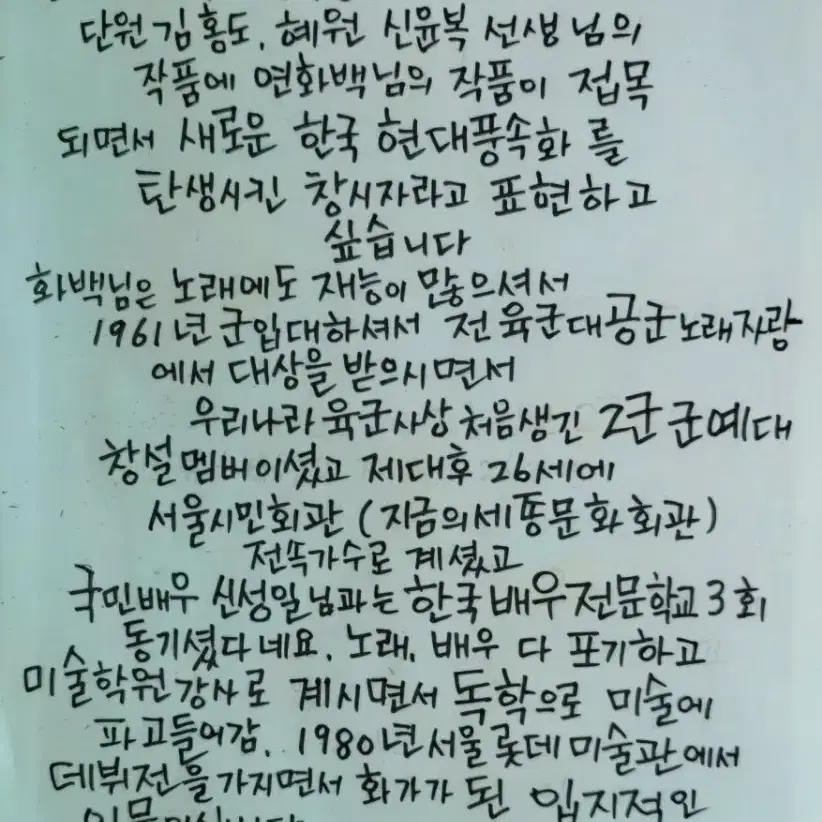 단원 김홍도, 혜원 신윤복 선생님의
작품에 연화백님의 작품이 접목
되면서 새로운 한국 현대풍속화 를
탄생시킨 창시자라고 표현하고
싶습니다
화백님은 노래에도 재능이 많으셔서
1961년 군입대하셔서 전 육군대공군노래자랑
에서 대상을 받으시면서
우리나라 육군사상 처음생긴 2군 군예대
창설멤버이셨고 제대후 26세에
서울시민회관 (지금의세종문화회관)
전속가수로 계셨고
국민배우 신성일님과는 한국배우전문학교 3회
동기셨다네요. 노래, 배우 다 포기하고
미술학원강사로 계시면서 독학으로 미술에
파고들어감, 1980년서울롯데미술관에서
데뷔전을가지면서 화가가 된 입지적인